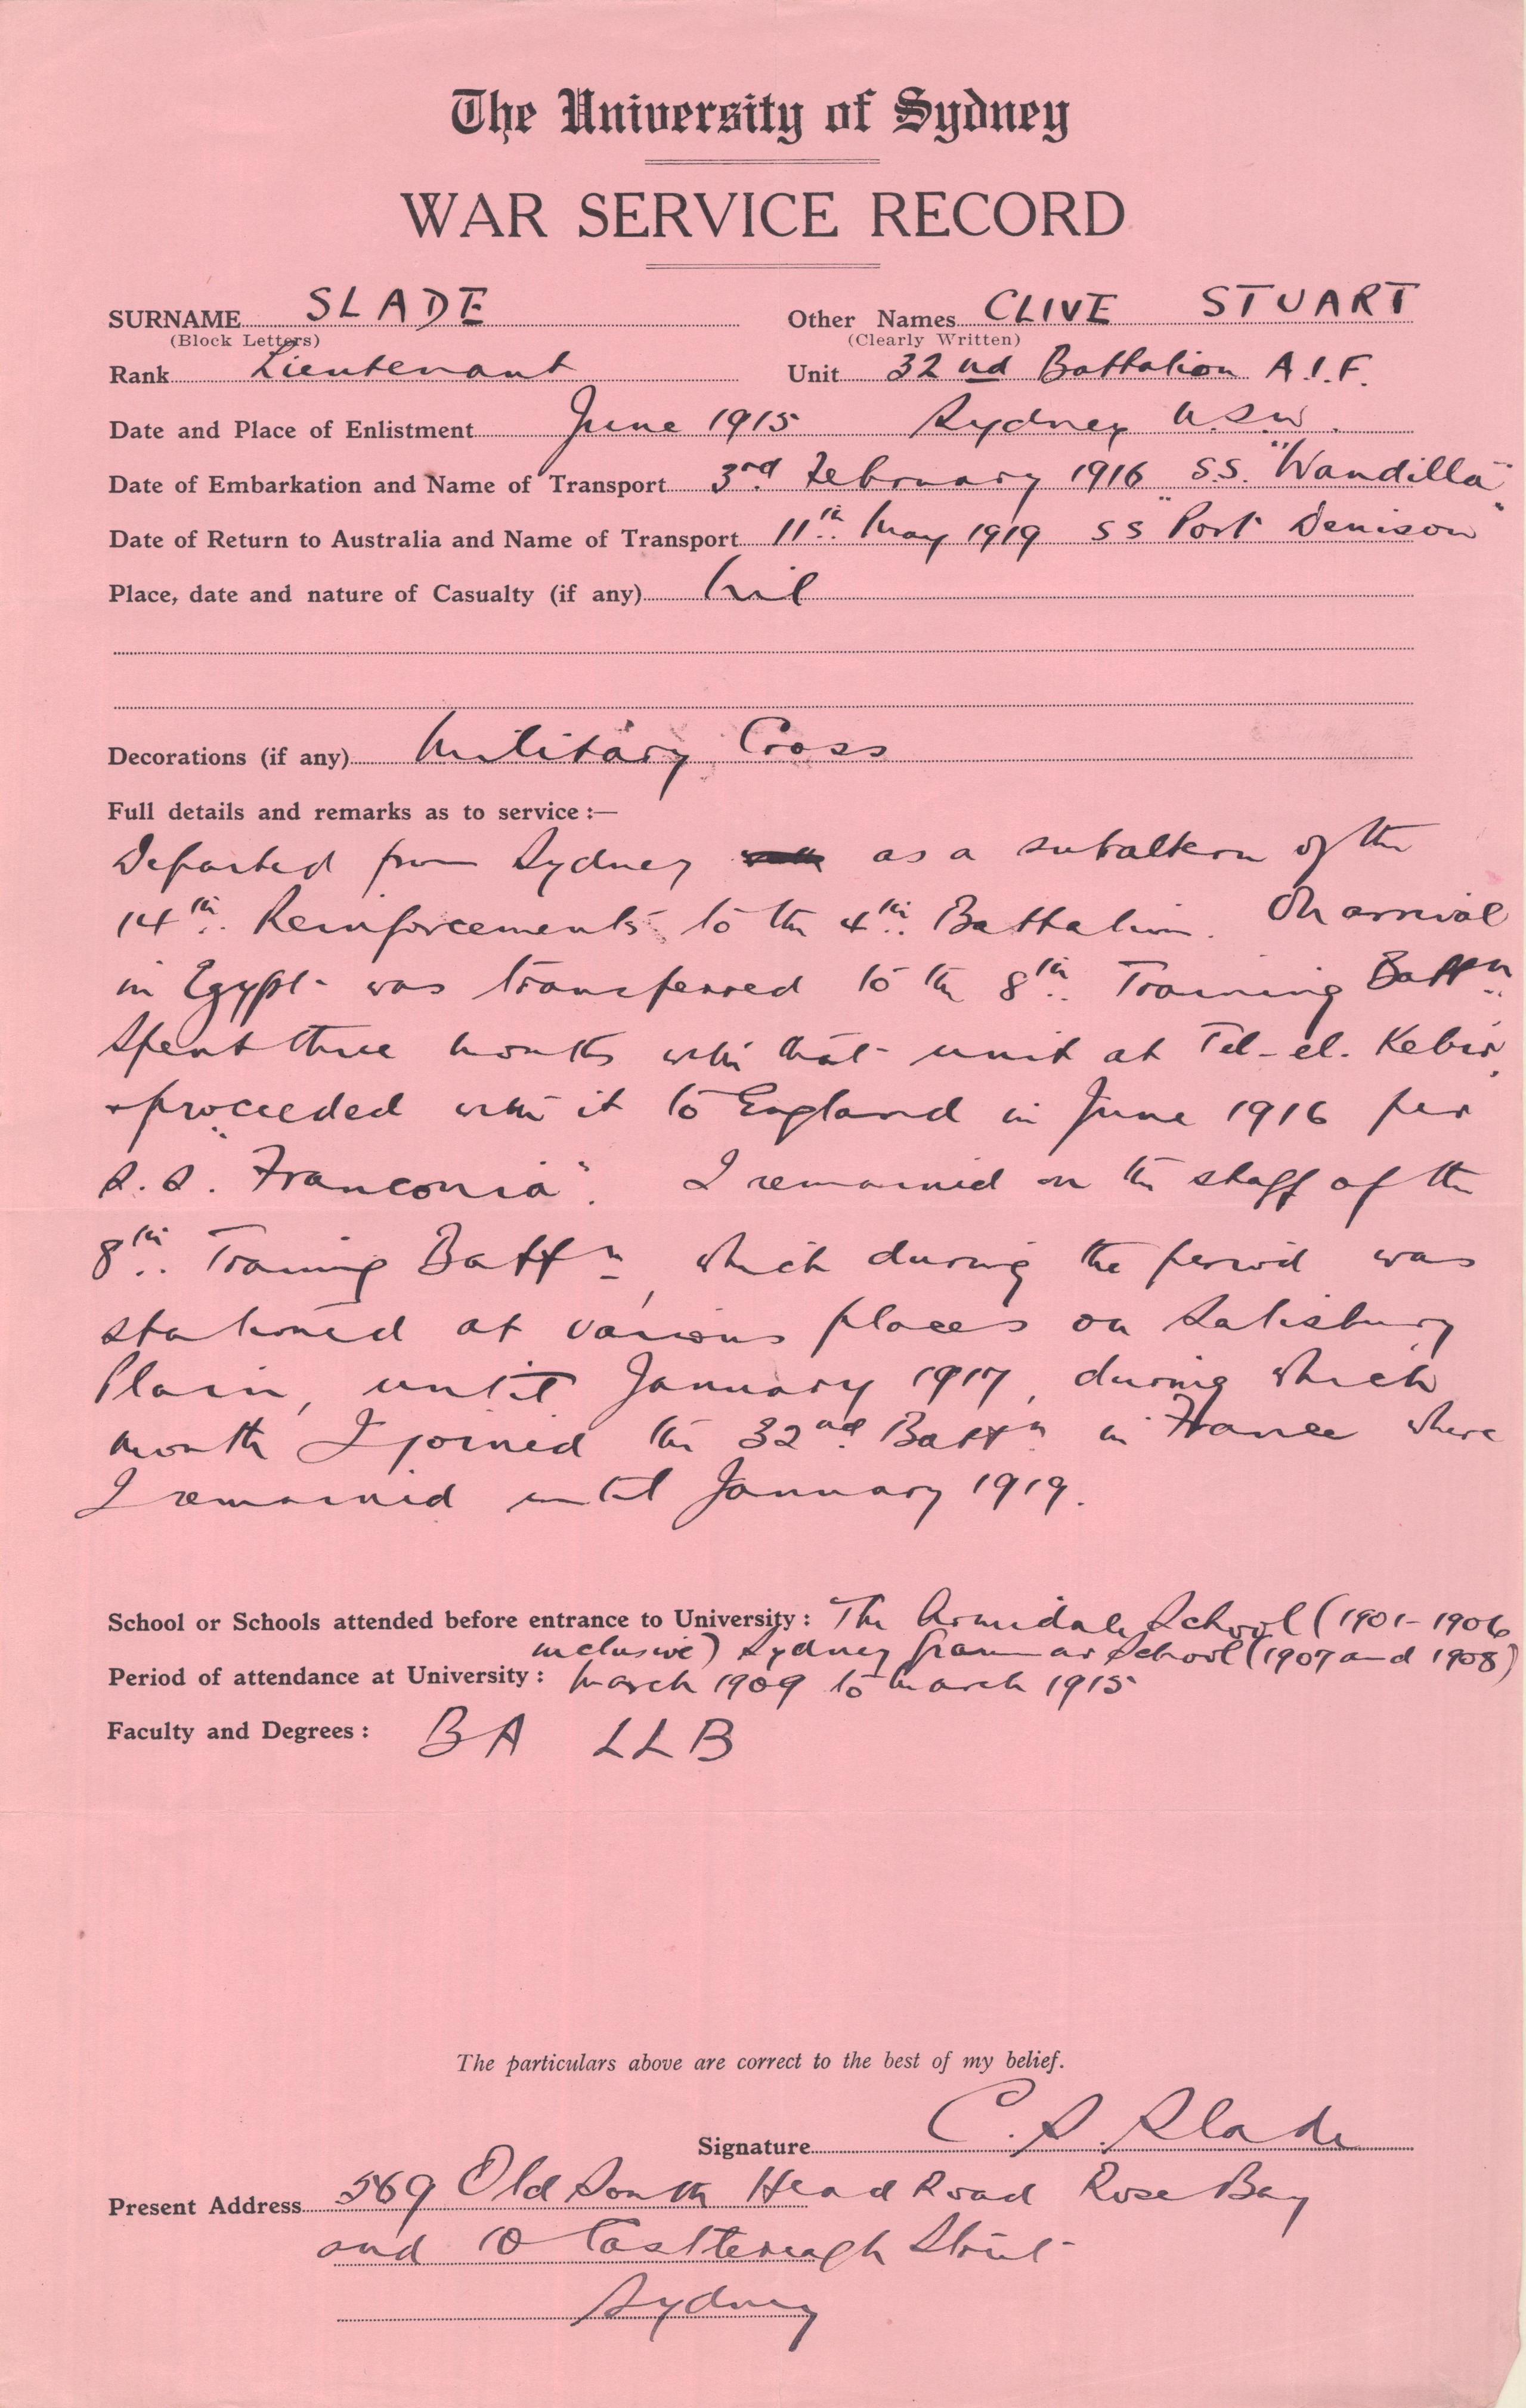 The University of Sydney
WAR SERVICE RECORD
SURNAME SLADE Other Names CLIVE STUART
(Block Letters) (Clearly Written)
Rank Lieutenant Unit 32nd Battalion A.I.F.
Date and Place of Enlistment June 1915 Sydney N.S.W.
Date of Embarkation and Name of Transport 3rd February 1916 S.S. "Wandilla"
Date of Return to Australia and Name of Transport 11th May 1919 SS "Port Denison"
Place, date and nature of Casualty (if any) Nil
Decorations (if any) Military Cross
Full details and remarks as to service :—
Departed from Sydney as a subaltern of the
14th Reinforcements to the 4th Battalion. On arrival
in Egypt was transferred to the 8th Training Battn.
Spent three months with that unit at Tel-el-Kebir,
+ proceeded with it to England in June 1916 per
S.S. "Franconia". I remained on the staff of the
8th Training Battn, which during the period was
stationed at various places on Salisbury
Plain, until January 1917, during which
month I joined the 32nd Battn in France where
I remained until January 1919.
School or Schools attended before entrance to University : The Armidale School (1901-1906
inclusive) Sydney Grammar School (1907 and 1908)
Period of attendance at University : March 1909 to March 1915
Faculty and Degrees : BA LLB
The particulars above are correct to the best of my belief.
Signature C. S. Slade
Present Address 569 Old South Head Road Rose Bay
and 10 Castlereagh Street
Sydney